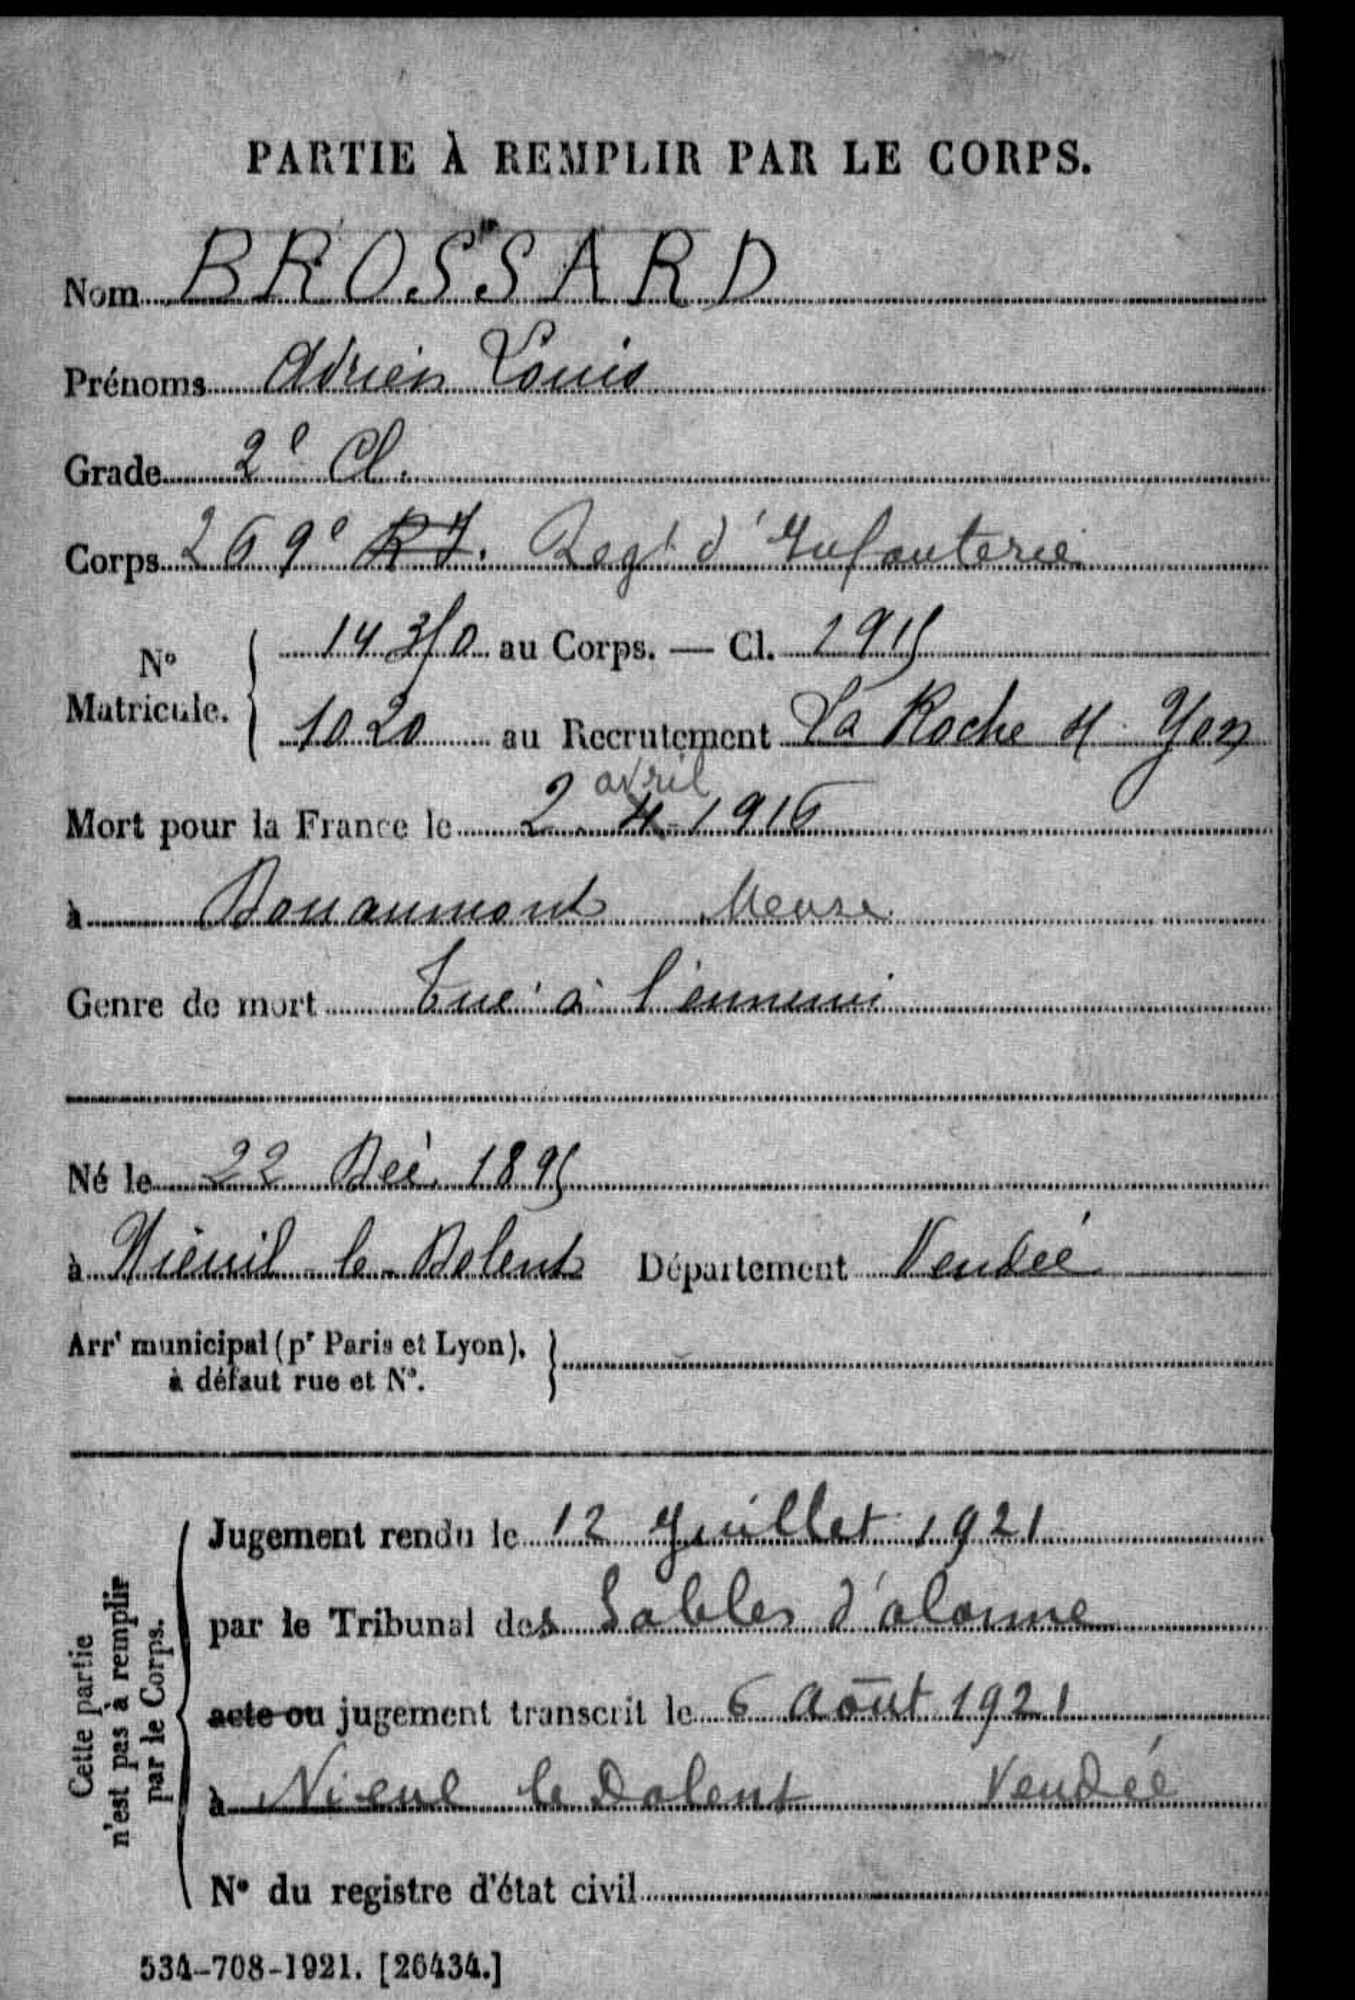 PARTIE À REMPLIR PAR LE CORPS.
Nom BROSSARD
Prénoms Adrien Louis
Grade 2e Cl.
Corps 269e R I. Regt d'Infanterie
No Matricule. 14350 au Corps. — Cl. 1915
1020 au Recrutement La Roche s/ Yon
avril
Mort pour la France le 2 4 1916
à Douaumont Meuse
Genre de mort Tué à l'ennemi
Né le 22 Déc. 1895
à Nieuil-le-Dolent Département Vendée
Arrt municipal (pr Paris et Lyon),
à défaut rue et No.
Cette partie
n'est pas à remplir
par le Corps.
Jugement rendu le 12 Juillet 1921
par le Tribunal des Sables d'olonne
acte ou jugement transcrit le 6 Août 1921
à Nieul le Dolent Vendée
No du registre d'état civil
534-708-1921. [26434.]